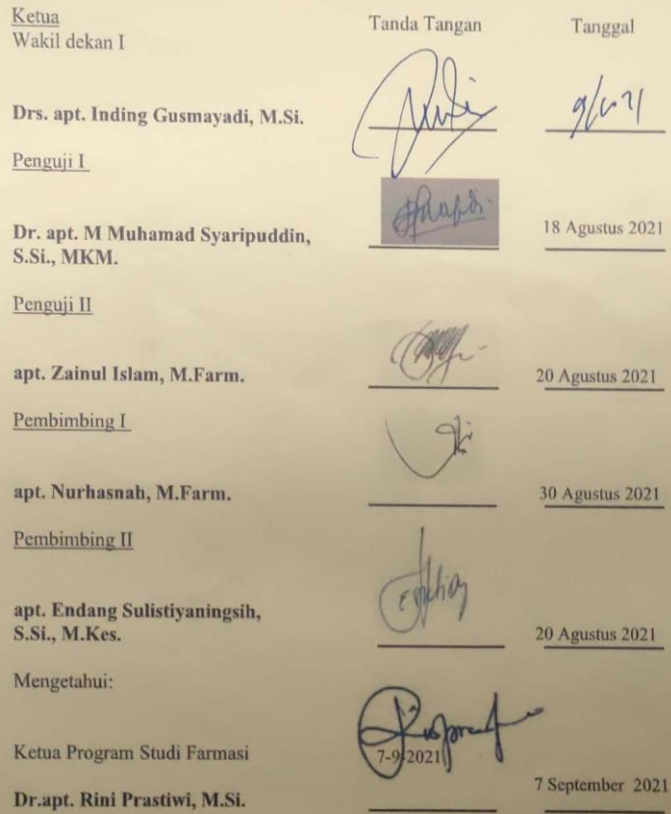 Ketua Tanda Tangan Tanggal
Wakil dekan I
Drs. apt. Inding Gusmayadi, M.Si.
Penguji I
Dr. apt. M Muhamad Syaripuddin, 18 Agustus 2021
S.Si., MKM.
Penguji II
apt. Zainul Islam, M.Farm. 20 Agustus 2021
Pembimbing I
apt. Nurhasnah, M.Farm. 30 Agustus 2021
Pembimbing II
apt. Endang Sulistiyaningsih,
S.Si., M.Kes. 20 Agustus 2021
Mengetahui:
Ketua Program Studi Farmasi 7-9-2021
7 September 2021
Dr.apt. Rini Prastiwi, M.Si.